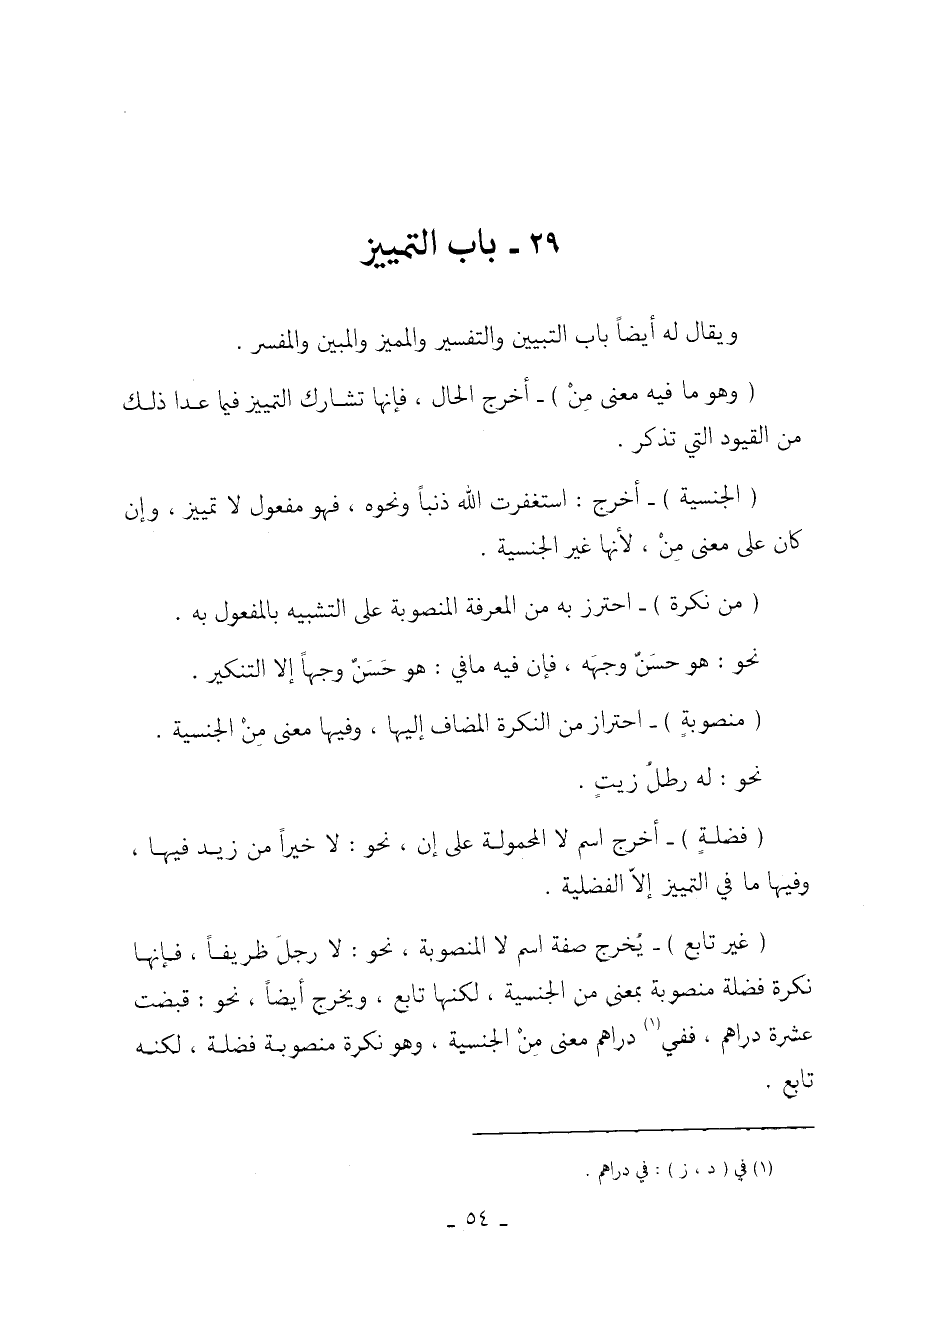 ٢٩ - باب التمييز
ويقال له أيضاً باب التبيين والتفسير والمميز والمبين والمفسر .
( وهو ما فيه معنى مِنْ ) - أخرج الحال ، فإنها تشارك التمييز فيما عدا ذلك
من القيود التي تذكر .
( الجنسية ) - أخرج : استغفرت الله ذنباً ونحوه ، فهو مفعول لا تمييز ، وإن
كان على معنى مِنْ ، لأنها غير الجنسية .
( من نكرة ) - احترز به من المعرفة المنصوبة على التشبيه بالمفعول به .
نحو : هو حسَنٌ وجهَه ، فإن فيه مافي : هو حَسَنٌ وجهاً إلا التنكير .
( منصوبةٍ ) - احتراز من النكرة المضاف إليها ، وفيها معنى مِنْ الجنسية .
نحو : له رطلُ زيتٍ .
( فضلةٍ ) - أخرج اسم لا المحمولة على إن ، نحو : لا خيراً من زيد فيها ،
وفيها ما في التمييز إلاّ الفضلية .
( غير تابع ) - يُخرج صفة اسم لا المنصوبة ، نحو : لا رجلَ ظريفاً ، فإنها
نكرة فضلة منصوبة بمعنى من الجنسية ، لكنها تابع ، ويخرج أيضاً ، نحو : قبضت
عشرة دراهم ، ففي(١) دراهم معنى مِنْ الجنسية ، وهو نكرة منصوبة فضلة ، لكنه
تابع .
(١) في ( د ، ز ) : في دراهم .
- ٥٤ -